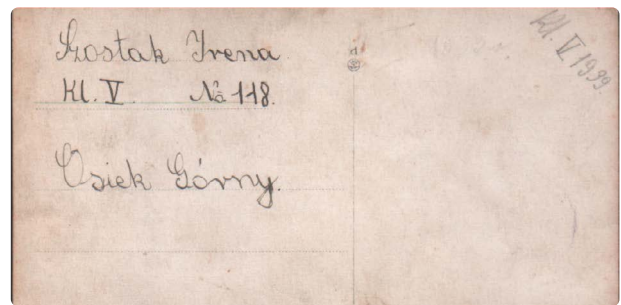 Szostak Irena
Kl. V. № 118.
Osiek Górny.
Kl. V. 1939.